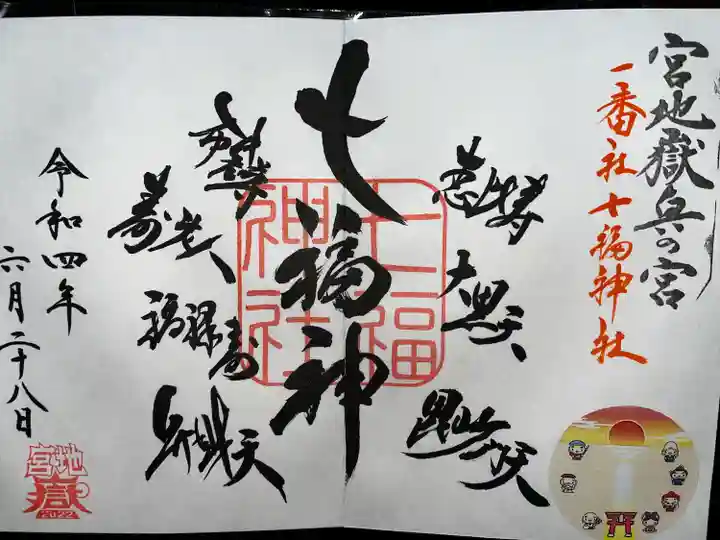 宮地嶽奥の宮
一番社七福神社
恵比寿
大黒天
毘沙門天
七福神
七福神社
布袋尊
寿老人
福禄寿
弁財天
令和四年
六月二十八日
宮地嶽